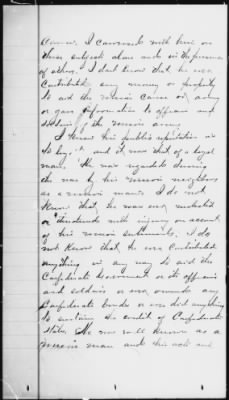 I conversed with him on
these subjects alone and in the presence
of others. I don't know that he ever
contributed any money or property
to aid the union cause or army
or gave information to officers and
soldiers of the union army
I knew his public reputation as
to loyalty and it was that of a loyal
man. He was regarded during
the war by his union neighbors
as a union man. I do not
know that he was ever molested
or threatened with injury on account
of his union sentiments. I do
not know that he ever contributed
anything in any way to aid the
Confederate Government or its officers
and soldiers or ever owned any
Confederate bonds or ever did anything
to sustain the credit of Confederate
States. He was well known as a
union man and his acts and